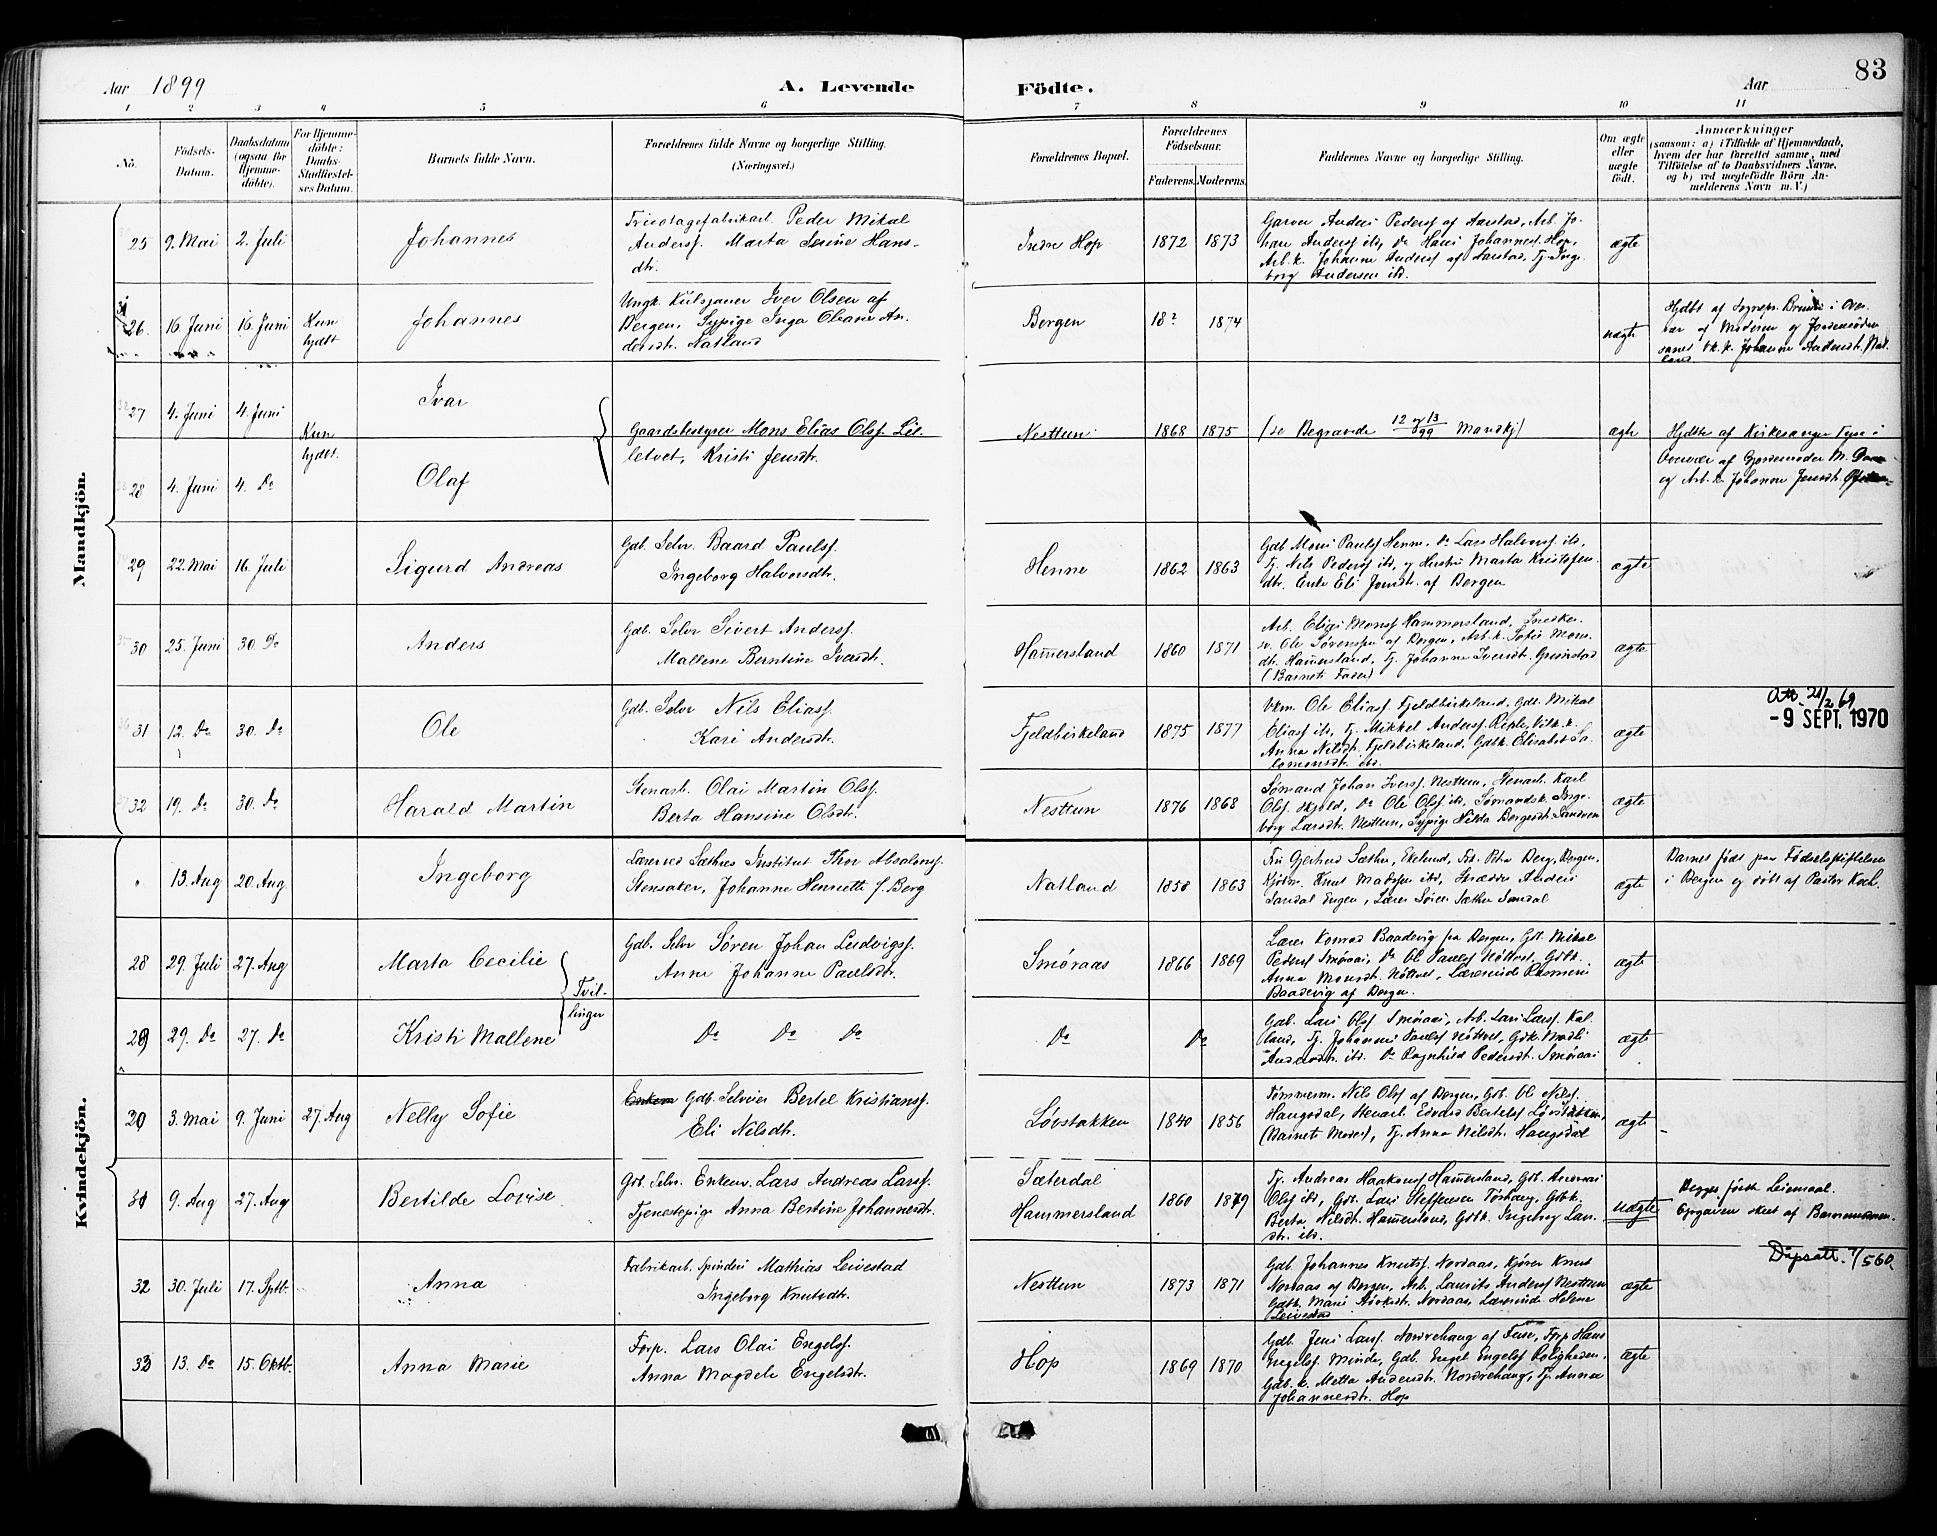 83
Aar 1899
A. Levende
Födte.
Aar
1 2 3 4 5 6 7 8 9 10 11
No.
Födsels-
Datum.
Daabsdatum
(ogsaa for
Hjemme-
döbte).
For Hjemme-
döbte:
Daabs-
Stadfæstel-
ses Datum.
Barnets fulde Navn.
Forældrenes fulde Navne og borgerlige Stilling.
(Næringsvei.)
Forældrenes Bopæl.
Forældrenes
Födselsaar.
Faderens. Moderens.
Faddernes Navne og borgerlige Stilling.
Om ægte
eller
uægte
födt.
Anmærkninger
(saasom: a) i Tilfælde af Hjemmedaab,
hvem der har forrettet samme, med
Tilföielse af to Daabsvidners Navne,
og b) ved uægtefödte Börn An-
melderens Navn m. V.)
Mandkjön.
25 9. Mai 2. Juli Johannes
Tricotagefabrikarb. Peder Mikal
Anderss. Marta Serine Hans-
dtr.
Indre Hop 1872 1873
Garver Anders Pederss af Aarstad, Arb. Jo-
han Anderss ibd, Do Hans Johanness. Hop,
Arb.k. Johanne Anderss af Aarstad, Tj. Inge-
borg Andersen ibd.
ægte
26. 16. Juni 16. Juni Kun
hjdbt
Johannes
Ungk. Kulsjauer Iver Olsen af
Bergen, Sypige Inga Oleane An-
dersdtr. Natland
Bergen 18? 1874
uægte
Hjdbt af Sognepr. Bruun i Over-
vær af Moderen og Jordemoder
27 4. Juni 4. Juni Ivar
Kun
hjdbt.
Gaardsbestyrer Mons Elias Olss. Lil-
letvet, Kristi Jensdtr.
Nesttun 1868 1875
(se Begravede 12 og 13/99 Mandkj)
ægte
Hjdbte af Kirkesanger Tyse i
Overvær af Gjordemoder M.
og Arb.k. Johanne Jensdtr.
28 4. Juni 4. Do Olaf
29 22. Mai 16. Juli Sigurd Andreas
Gdb. Selv. Baard Paulss.
Ingeborg Halvorsdtr.
Henne 1862 1863
Gdb Mons Paulss Henne. Do Lars Halvorss ibd,
Tj. Nils Pederss ibd, og Hustru Marta Kristofers-
dtr. Enke Eli Jonsdtr. af Bergen
ægte
30 25. Juni 30. Do Anders
Gdb. Selv Sivert Anderss.
Mallene Berntine Iversdtr.
Hamersland 1860 1871
Arb. Elias Monss Hammersland, Snedker-
sv. Ole Sørensen af Bergen, Arb.k. Sofie Mons-
dtr. Hamersland, Tj. Johanne Iversdtr. Grimstad
(Barnets Fader)
ægte
31 12. Do 30. Do Ole
Gdb. Selv Nils Eliass.
Kari Andersdtr.
Fjeldbirkeland 1875 1877
Ukm. Ole Eliass. Fjeldbirkeland, Gdb. Mikal
Eliass ibd, Tj. Mikkel Anderss. Riple,
Anna Nilsdtr. Fjeldbirkeland, Gdbk. Elisabet Sa-
lomonsdtr. ibd.
ægte
Att. 21/2 69
-9 SEPT. 1970
32 19. Do 30. Do Harald Martin
Stenarb. Olai Martin Olss.
Berta Hansine Olsdtr.
Nesttun 1876 1868
Sømand Johan Iverss. Nesttun, Stenarb. Karl
Olss. Skjold, Do Ole Olss ibd, Sømandsk. Inge-
borg Larsdtr. Nesttun, Sypige Hilda Borgersdtr. Sandven
ægte
Kvindekjön.
13. Aug 20. Aug Ingeborg
Lærer ved Sæthres Institut Thor Absalons.
Stensaker, Johanne Henriette f. Berg
Natland 1858 1863
Fru Gjertrud Sæthre, Ekelund, Frk. Petra Berg, Bergen,
Kjöbm. Knut Madssen ibd, Skrædder Anders
Sandal Engen, Lærer Sören Sæthre Sandal
ægte
Barnet födt paa Födselsstiftelsen
i Bergen og döbt af Pastor Koch.
28 29. Juli 27. Aug Marta Cecilie
Gdb. Selv Søren Johan Ludvigss.
Anne Johanne Paulsdtr.
Smøraas 1866 1869
Lærer Konrad Baadevig fra Bergen, Gdb. Mikal
Pederss Smøraas, Do Ol Paulss Nöttvet, Gdbk.
Anna Monsdtr. Nöttvet, Lærerinde Rasmine
Baadevig af Bergen.
ægte
Tvil-
linger
29 29. Do 27. Do Kristi Mallene
Do Do Do
Do Do
Gdb. Lars Olss Smøraas, Arb. Lars Larss. Kal-
land, Tj. Johannes Paulss Nöttvet, Gdbk. Madli
Andersdtr. ibd. Do Ragnhild Pedersdtr. Smøraas
ægte
30 3. Mai 9. Juni 27. Aug Nelly Sofie
Gdb. Selveier Bertel Kristianss.
Eli Nilsdtr.
Løvstakken 1840 1856
Tømmerm. Nils Olss af Bergen, Gdb. Ol Nilss.
Haugsdal, Stenarb. Edvard Bertelss Løvstakken,
(Barnets Moder), Tj. Anna Nilsdtr. Haugsdal
ægte
31 9. Aug 27. Aug Bertilde Lovise
Gdb. Selv. Enkem. Lars Andreas Larss.
Tjenestepige Anna Bertine Johannesdtr.
Sæterdal
Hammersland
1860 1879
Tj. Andreas Haakonss Hamersland, Gdb. Andreas
Olss ibd, Gdb. Lars Steffensen Tøshaug, Gdbk.
Berta Nilsdtr. Hamersland, Gdbk. Ingeborg Lars-
dtr. ibd.
uægte
Begges første Leiermaal.
Opgaven skeet af Barnemoderen.
Dåpsatt. 1/560
32 30. Juli 17. Sptb. Anna
Fabrikarb. Spinderi Mathias Leivestad
Ingeborg Knutsdtr.
Nesttun 1873 1871
Gdb. Johannes Knutss. Nordaas, Kjører Knut
Nordaas af Bergen, Arb. Laurits Anderss Nesttun
Gdbk. Mari Størksdtr. Nordaas, Lærerinde Helene
Leivestad
ægte
33 13. Do 15. Oktb. Anna Marie
Forp. Lars Olai Engelss.
Anna Magdele Engelsdtr.
Hop 1869 1870
Gdb. Jens Larss. Nordrehaug af Fuse, Forp Hans
Engelss. Minde, Gdb. Engel Engelss Roligheden,
Gdb.k. Metta Andersdtr. Nordrehaug, Tj. Anna
Johannesdtr. Hop
ægte